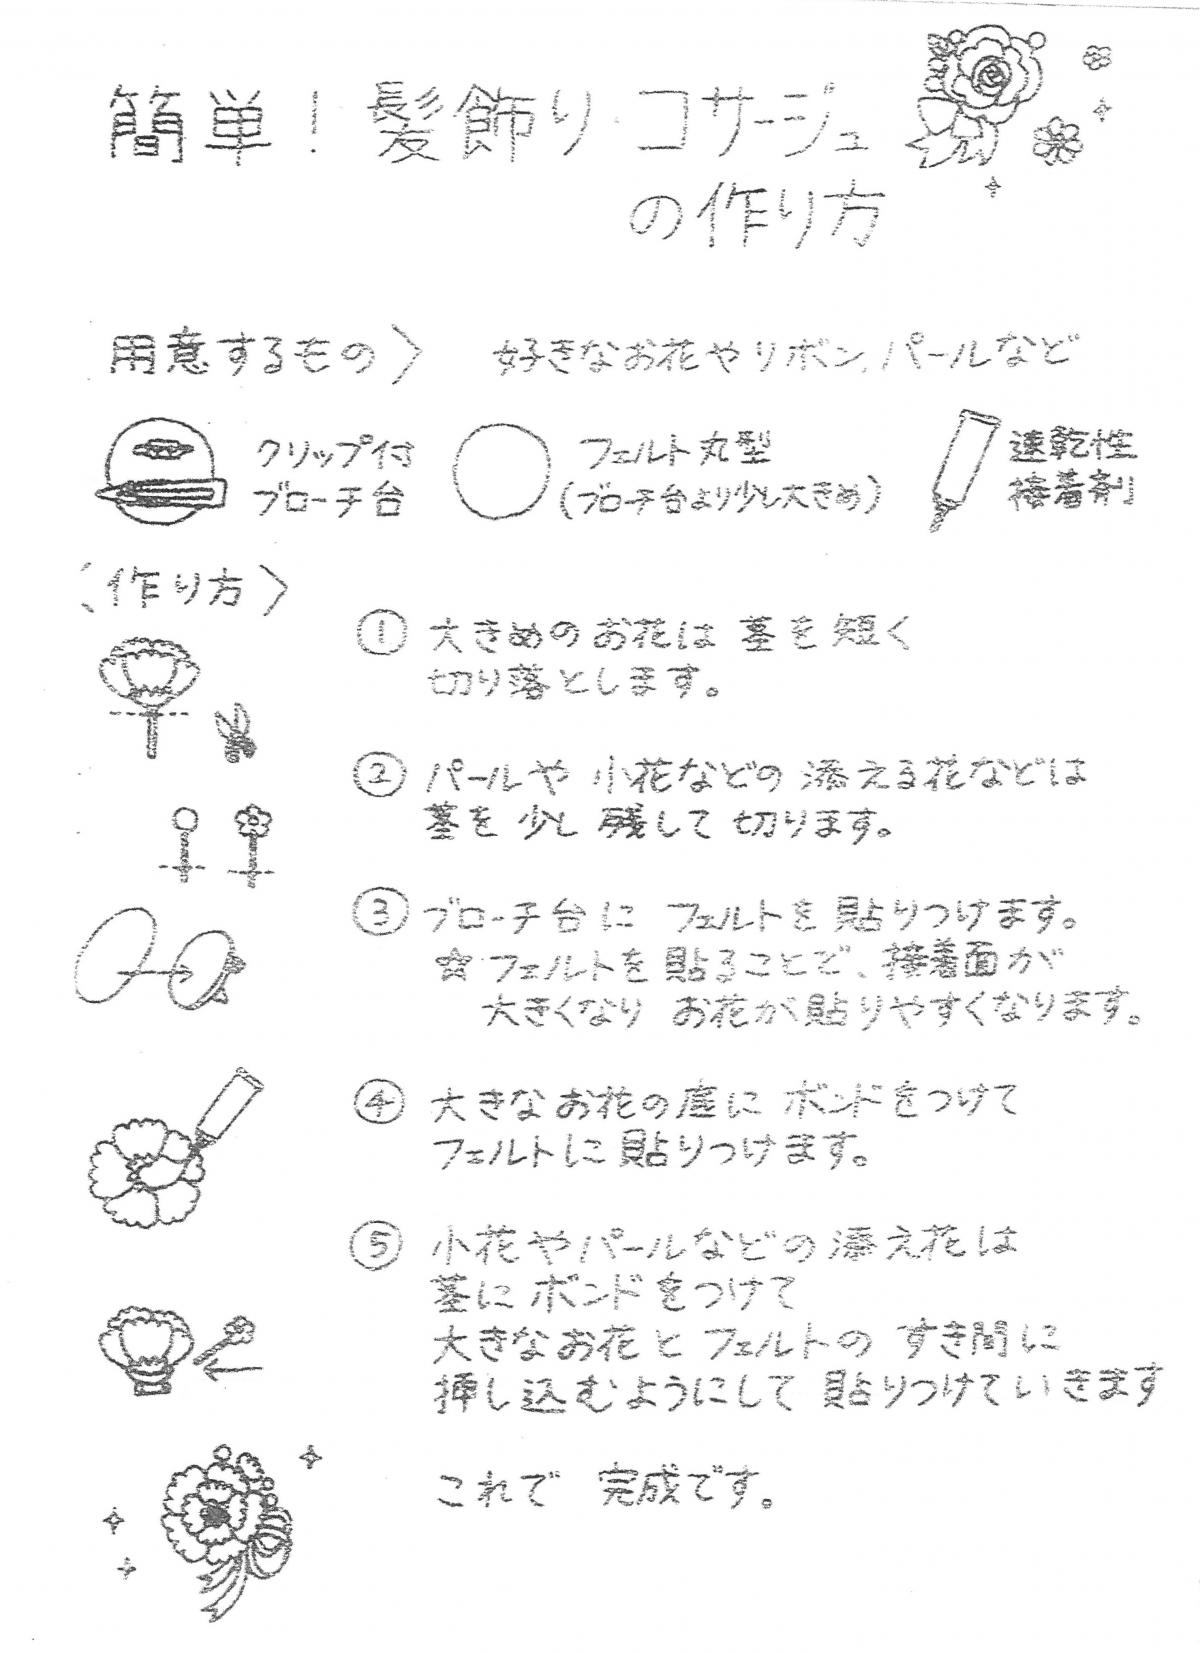 簡単！髪飾り・コサージュ
の作り方
用意するもの〉 好きなお花やリボン、パールなど
クリップ付
ブローチ台
フェルト丸型
(ブローチ台より少し大きめ)
速乾性
接着剤
〈作り方〉
① 大きめのお花は 茎を短く
切り落とします。
② パールや 小花などの 添える花などは
茎を 少し 残して 切ります。
③ ブローチ台に フェルトを 貼りつけます。
☆フェルトを貼ることで、接着面が
大きくなり お花が貼りやすくなります。
④ 大きなお花の底に ボンドをつけて
フェルトに貼りつけます。
⑤ 小花やパールなどの添え花は
茎に ボンドをつけて
大きなお花と フェルトの すき間に
挿し込むようにして 貼りつけていきます
これで 完成です。